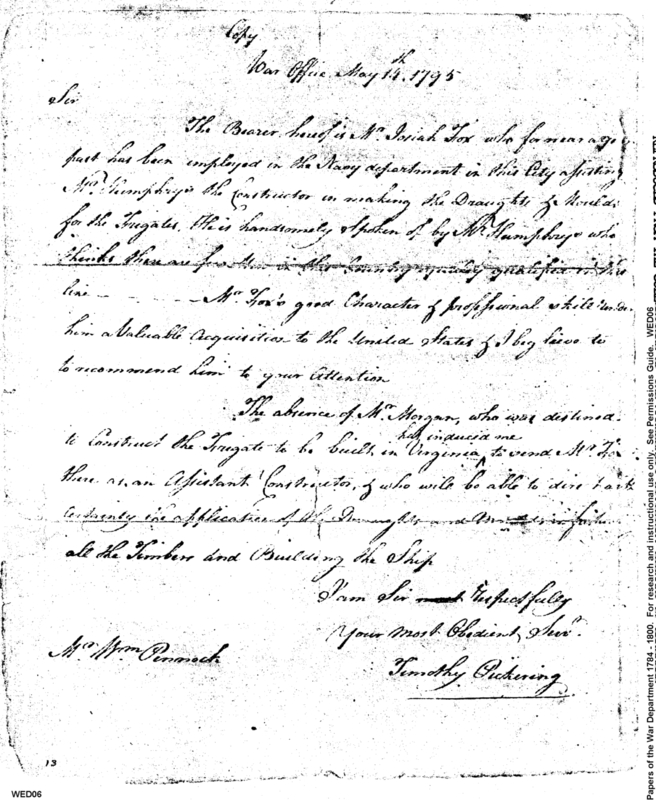 Copy
War Office May 14th. 1795
Sir
The Bearer hereof is Mr. Josiah Fox who for near a
past has been employed in the Navy department in this City assisting
Humphrys the Constructor in making the Draughts & Moulds
for the Frigates. He is handsomely Spoken of by Mr. Humphrys who
thinks there are few Men in this Country equally qualified in this
line — — — Mr Fox's good Character & professional skill render
him a Valuable Acquisition to the United States & I beg leave to
to recommend him to your Attention
The absence of Mr. Morgan, who was destined
to Construct the Frigate to be built in Virginia, has induced me to send Mr. Fox
there as an Assistant Constructor, & who will be able to direct with
Certainty the application of the Draughts and Moulds in
all the Timbers and Building the Ship
I am Sir Respectfully
Your most Obedient Servt.
Timothy Pickering
Mr. Wm Pennock
13
WED06
Papers of the War Department 1784 - 1800. For research and instructional use only. See Permissions Guide. WED06